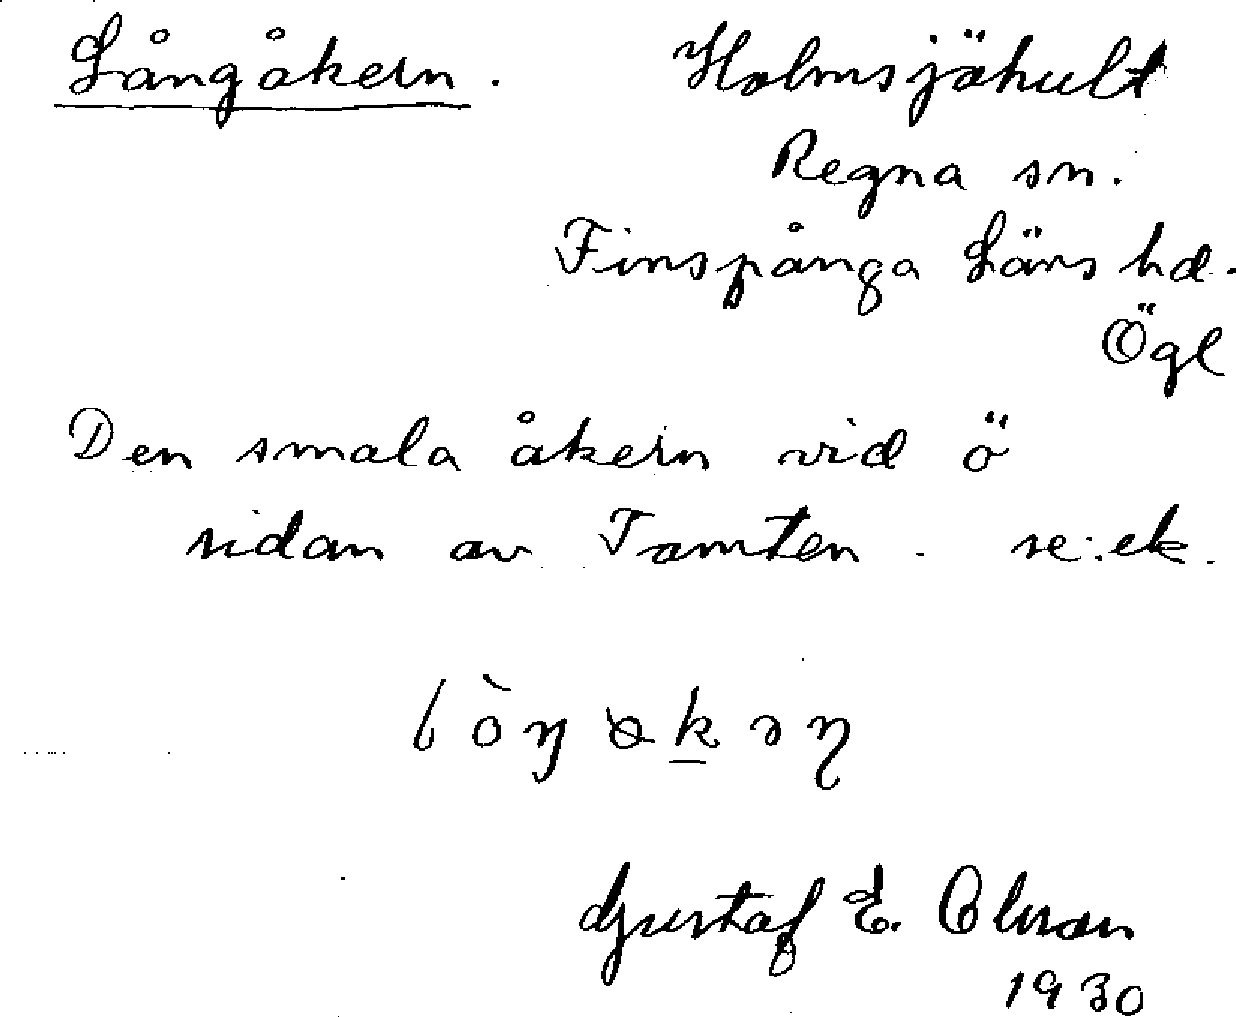 Långåkern. Holmsjöhult
Regna sn.
Finspånga Läns hd.
Ögl
Den smala åkern vid ö
sidan av Tomten. se: ek.
Gustaf E. Olsson
1930